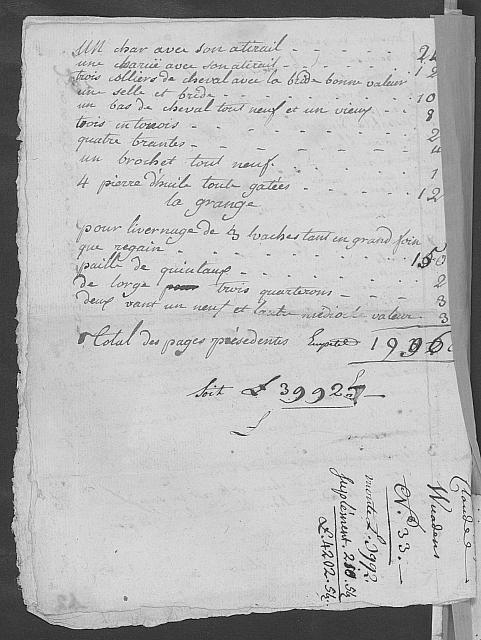 un char avec son atirail - - - - - 24
une charüe avec son atirail - - - - 12
trois colliers de cheval avec la bride bonne valeur
une selle et bride - - - - - - 10
un bas de cheval tout neuf et un vieux - - - 8
trois entonois - - - - - - - 2
quatre brantes - - - - - - - 4
un brochet tout neuf. - - - - - 1
4 pierre d'huile toute gatées - - - - 12
la grange
pour livernage de 3 vaches tant en grand foin
que regain - - - - - - - 150
paille de quintaux - - - - - - 2
de lorge trois quarterons - - - - 3
deux vant un neuf et lautre mediocle valeur - 3
Total des pages présedentes 1996
Soit £ 3992 -
Claude
Wuadens
N.° 33. -
monte L. 3992.
Suplément. 210. 5½
£ 4202. 5½.